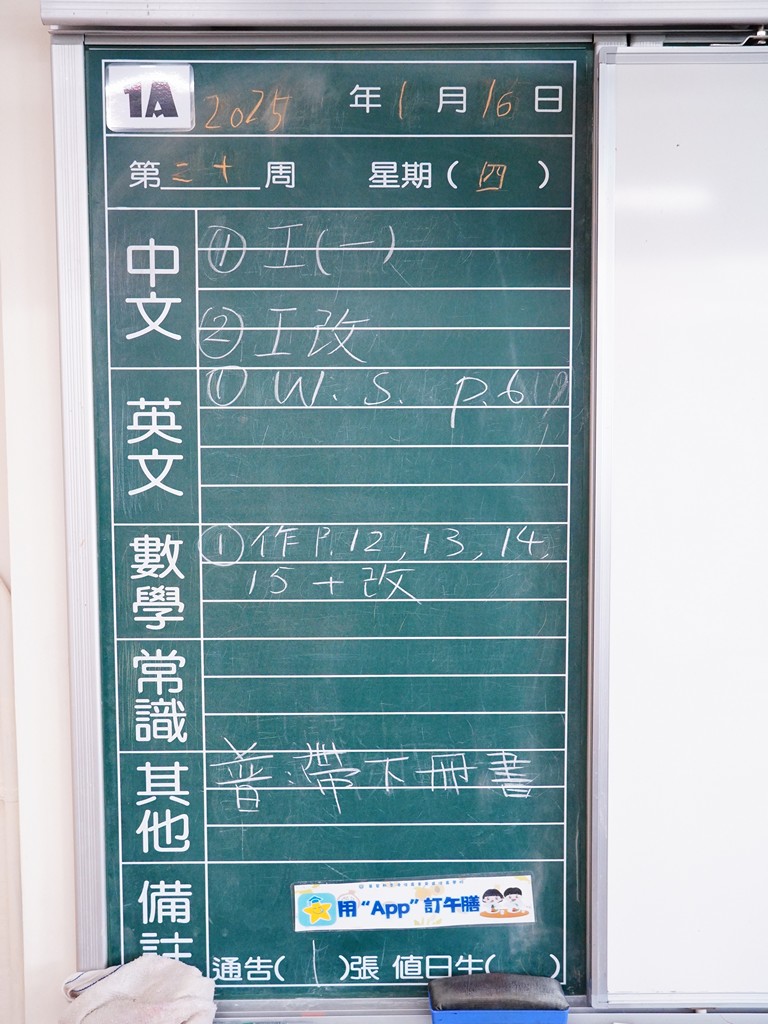 1A 2025 年 1 月 16 日
第 二十 周 星期 ( 四 )
中文
① 工(一)
② 工改
英文
① W. S. p.6
數學
① 作 P.12, 13, 14,
15 + 改
常識
其他
普:帶下冊書
備註
用“App”訂午膳
通告( 1 )張 值日生( )